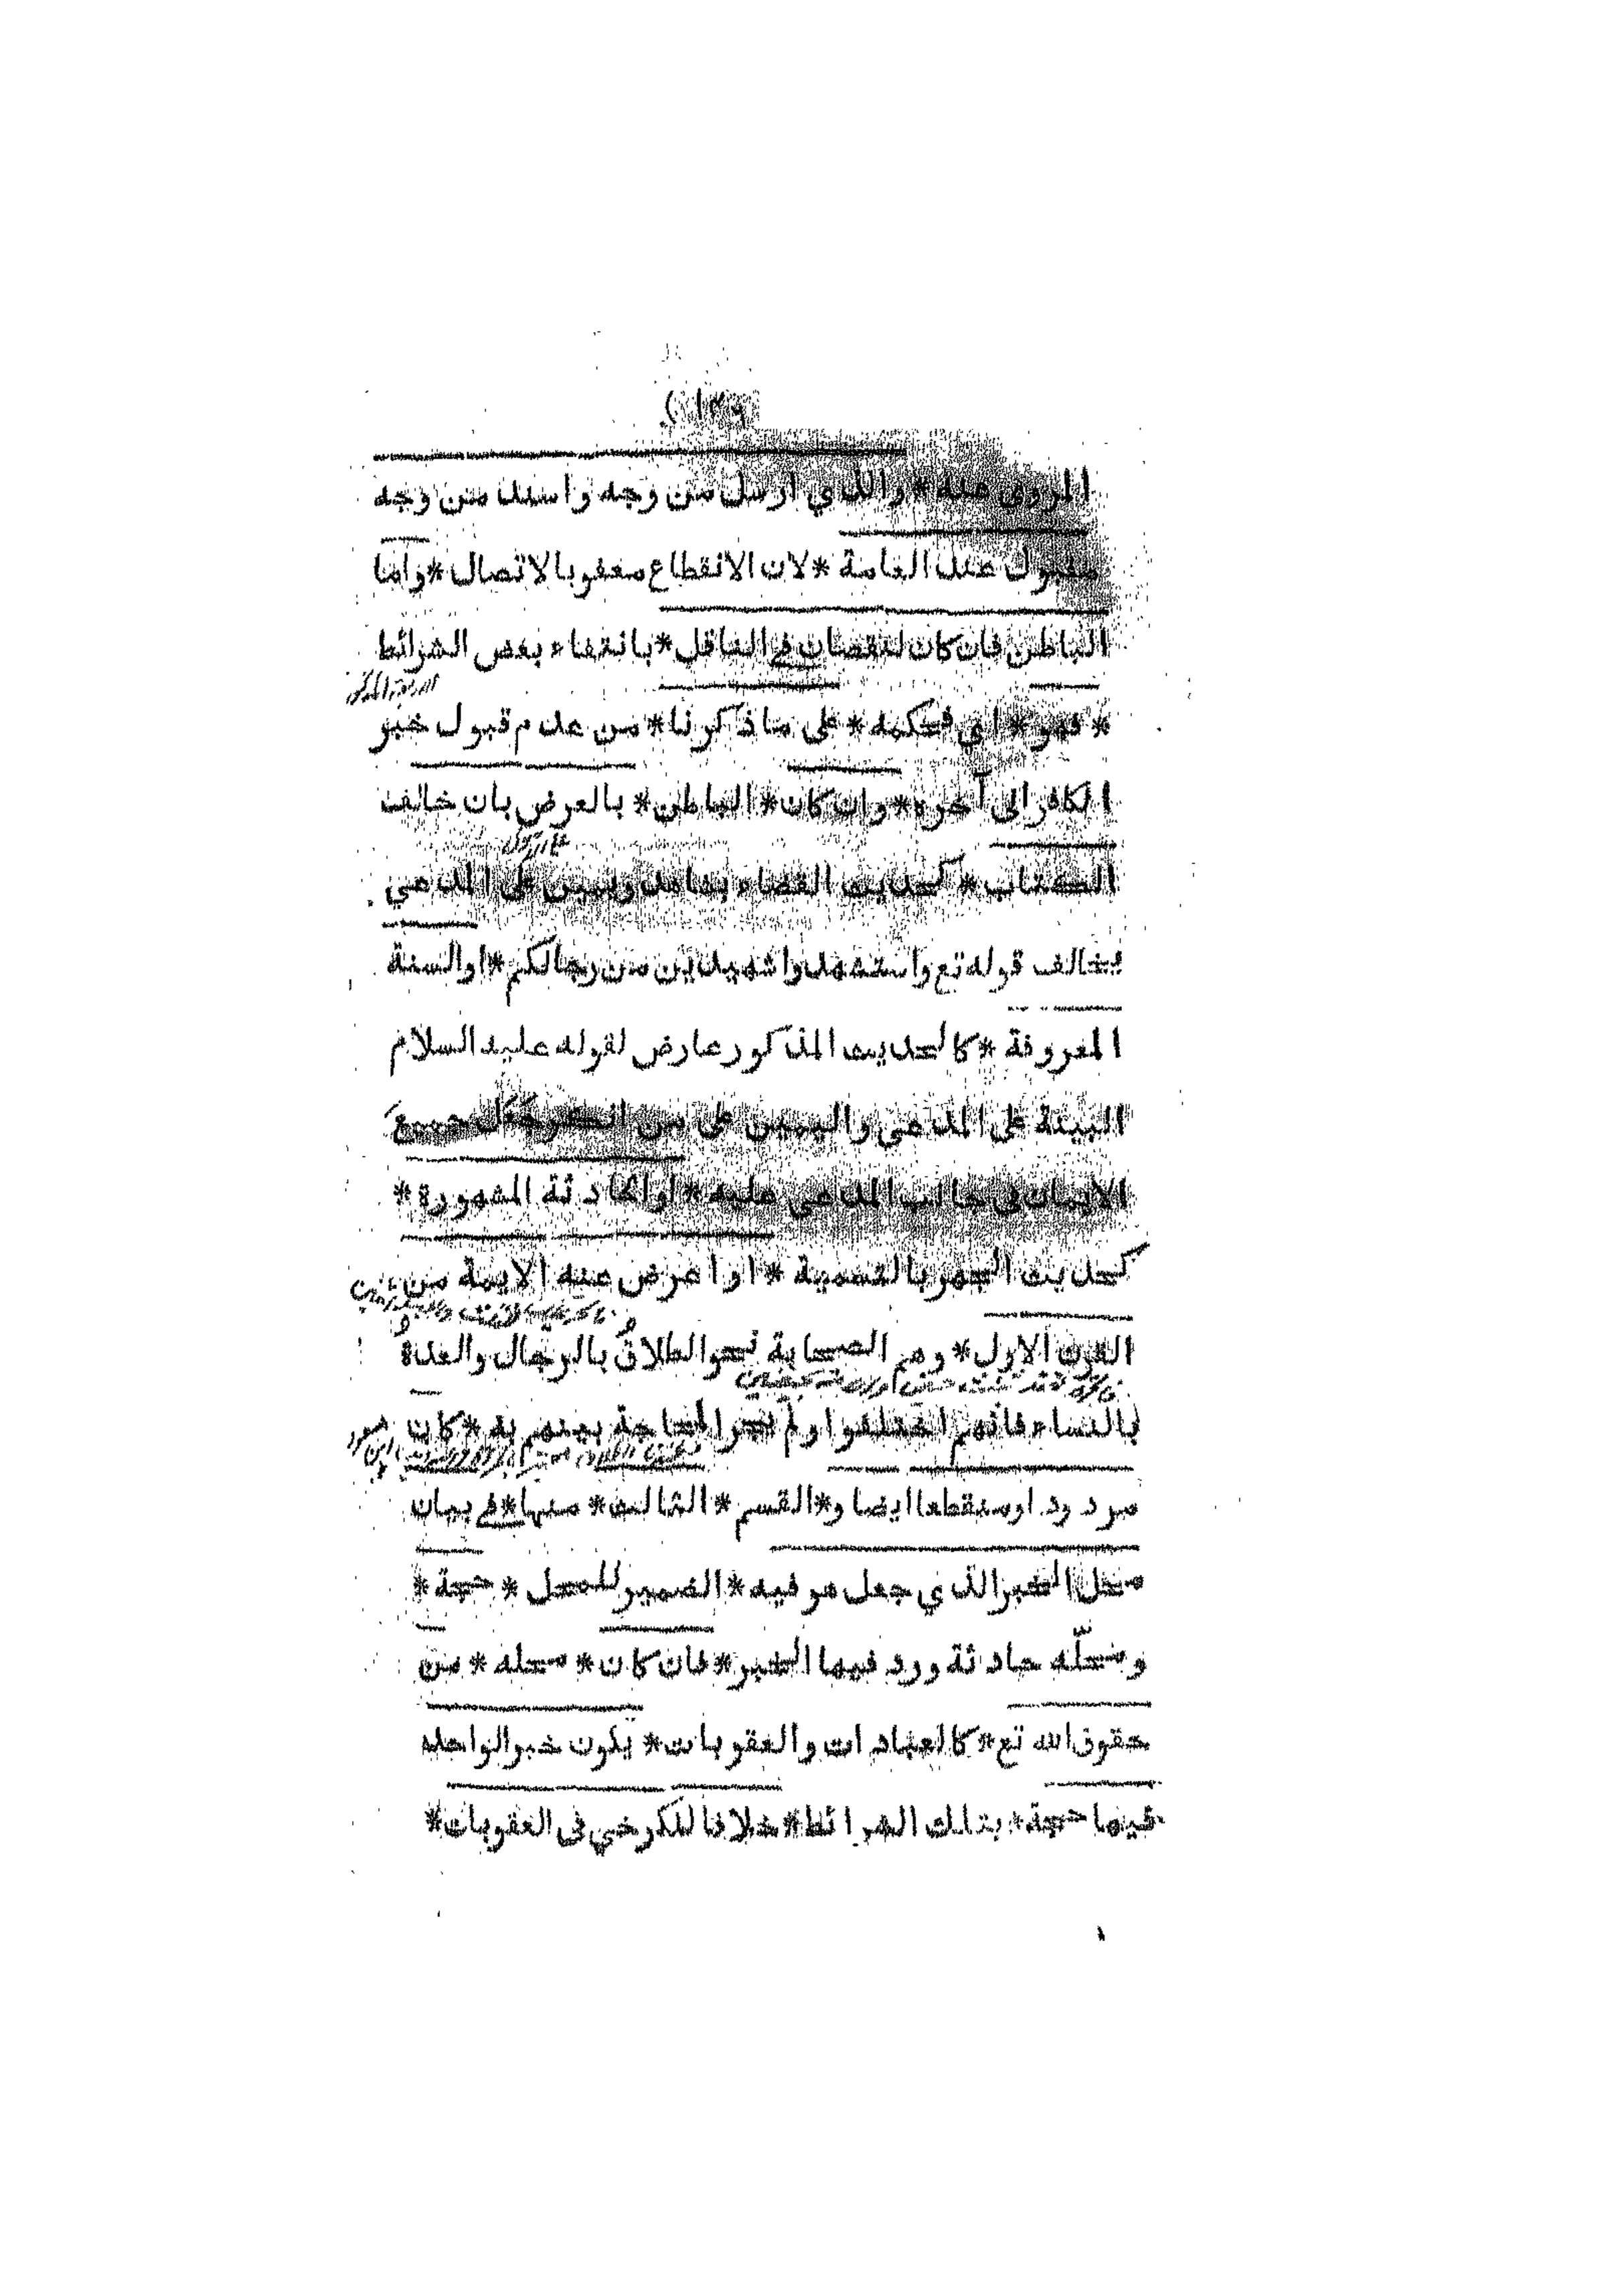 المروى عنه * والذي ارسل من وجه واسند من وجه
مقبول عند العامة * لان الانقطاع معفو بالاتصال * واما
الباطن فان كان لنقصان في الناقل * بانتفاء بعض الشرائط
* فهو * اي فحكمه * على ما ذكرنا * من عدم قبول خبر
الكافر الى آخره * وان كان * الباطن * بالعرض بان خالف
الكتاب * كحديث القضاء بشاهد ويمين على المدعي
يخالف قوله تع واستشهدوا شهيدين من رجالكم * او السنة
المعروفة * كالحديث المذكور عارض لقوله عليه السلام
البينة على المدعى واليمين على من انكر جَعَل جميعَ
الايمان في جانب المدعى عليه * او الحادثة المشهورة *
كحديث الجهر بالتسمية * او اعرض عنه الايمة من
القرن الاول * وهم الصحابة نحو الطلاقُ بالرجال والعدةُ
بالنساء فانهم اختلفوا ولم تجر المحاجة بينهم به * كان
مردودا ومنقطعا ايضا و * القسم * الثالث * منها * في بيان
محل الخبر الذي جعل هو فيه * الضمير للمحل * حجة *
ومحلّه حادثة ورد فيها الخبر * فان كان * محله * من
حقوق الله تع * كالعبادات والعقوبات * يكون خبر الواحد
فيها حجة * بتلك الشرائط * خلافا للكرخي في العقوبات *